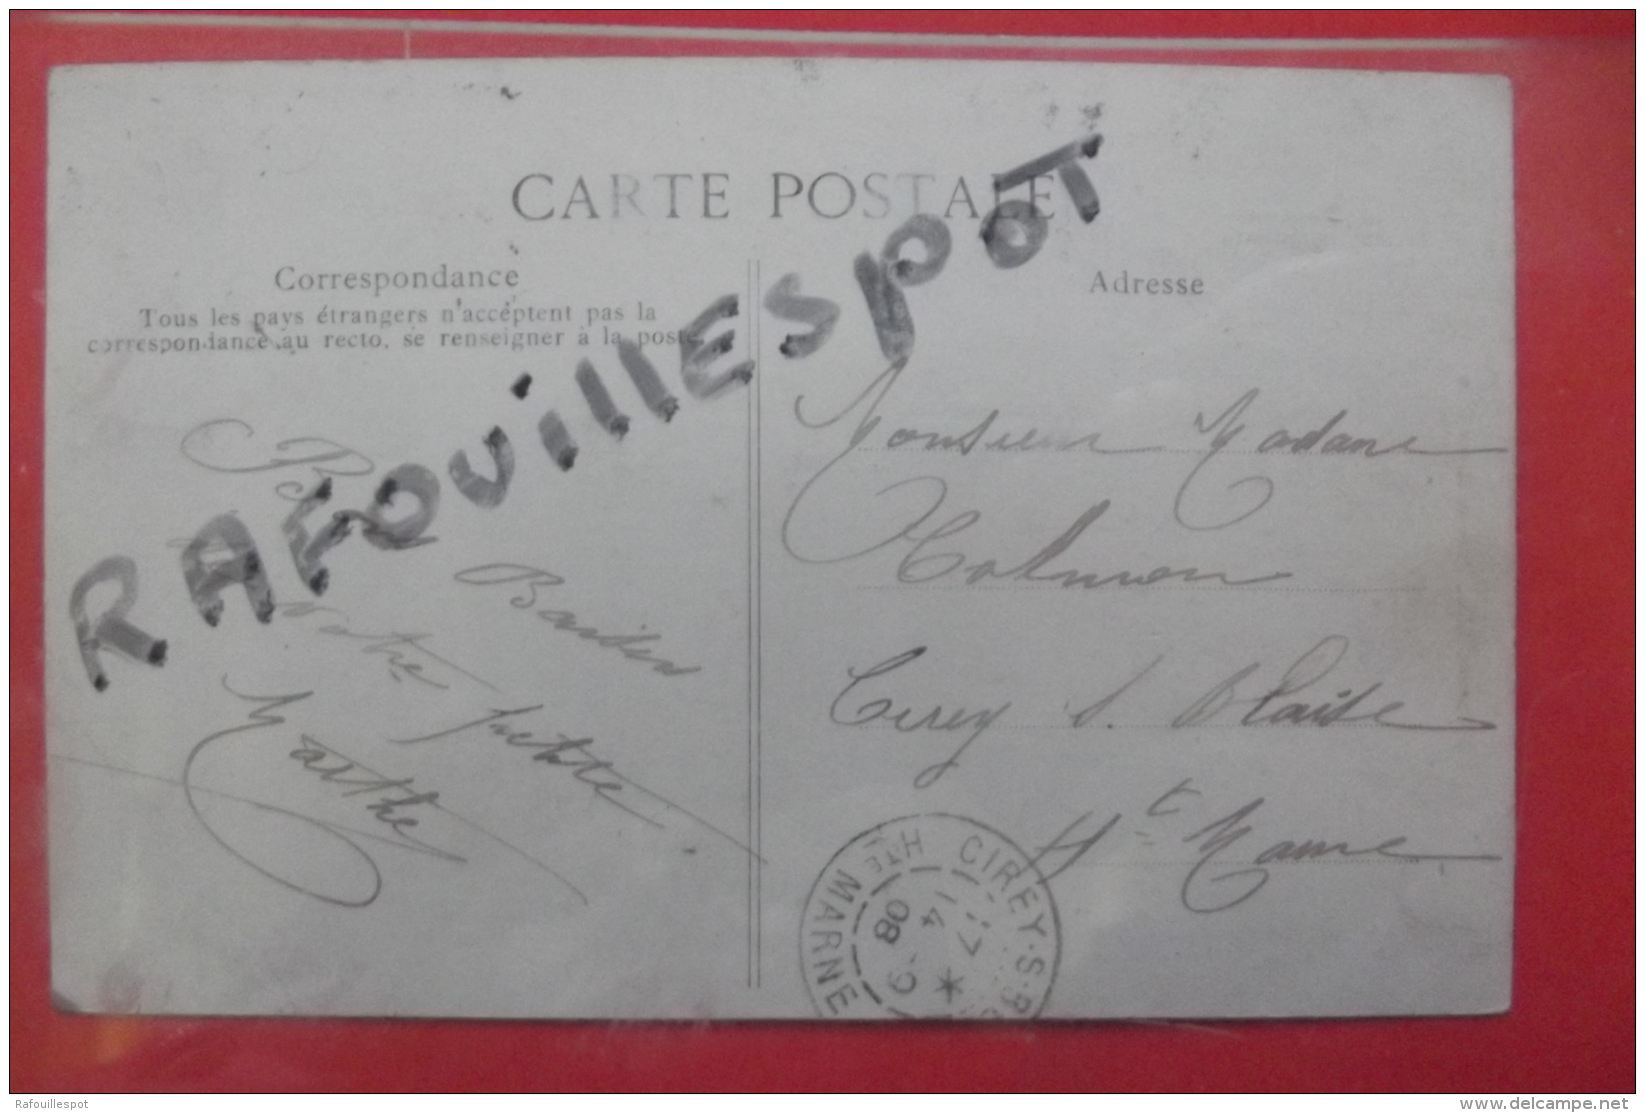 CARTE POSTALE
Correspondance
Tous les pays étrangers n'acceptent pas la
correspondance au recto, se renseigner à la poste
RAFOUillESPOT
Baisers
Votre petite
Marthe
Adresse
Monsieur Madame
Colmon
Cirey s. Blaise
Hte Marne
CIREY-S-B
Hte MARNE
17 *
14 9
08
Rafouillespot
delcampe.net